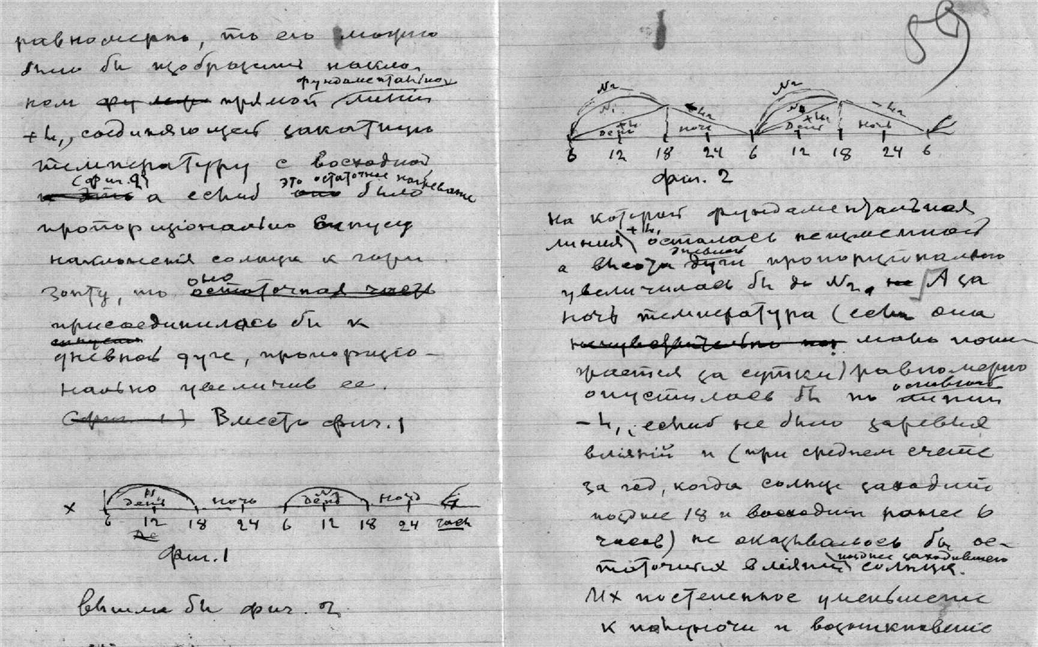 равномерно, то его можно
было бы изобразить накло-
ном прямой фундаментальной линии
+h, соединяющей закатную
температуру с восходной
(фиг. 2) а еслиб это остаточное нагревание было
пропорционально синусу
наклонения солнца к гори-
зонту, то оно остаточная часть
присоединилась бы к
дневной дуге, пропорцио-
нально увеличив ее.
(фиг. 1) Вместо фиг. 1
х N День ночь N День ночь
6 12 18 24 6 12 18 24 часы
фиг. 1
вышла бы фиг. 2
59
N2 N1 +h День -h2 ночь N2 +h День -h2 ночь
6 12 18 24 6 12 18 24 6
фиг. 2
на которой фундаментальная
линия +h, осталась неизменной
а высота дневной дуги пропорционально
увеличилась бы до N2. А за
ночь температура (если она
мало пони-
жается за сутки) равномерно
опустилась бы по линии
-h, еслиб не было
влияний и (при среднем счете
за год, когда солнце заходит
позднее 18 и восходит ранее 6
часов) не оказывалось бы ос-
таточных влияний позднее заходившего солнца.
Их постепенное уменьшение
к полуночи и возникновение